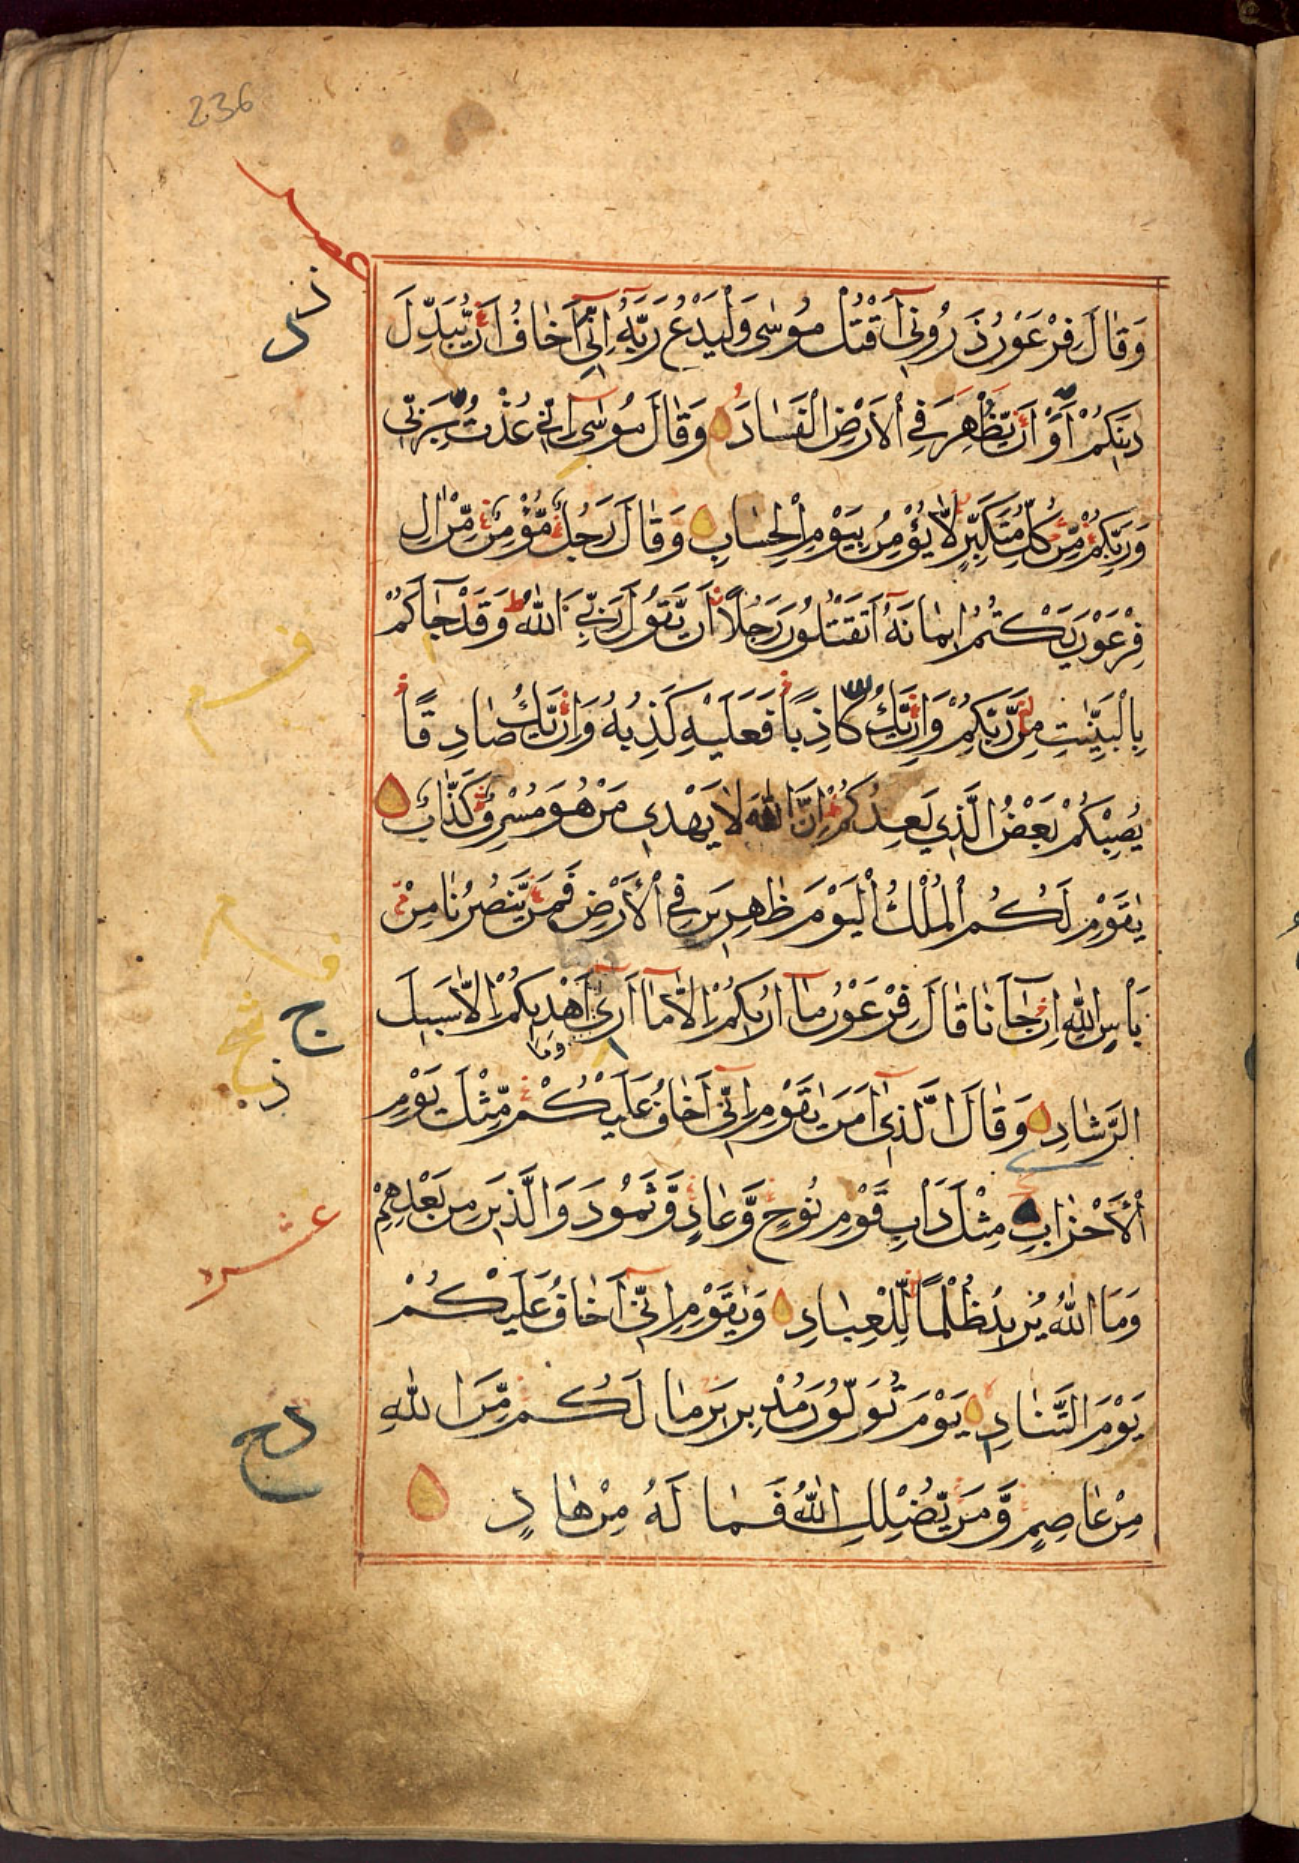 236
وَقَالَ فِرْعَوْنُ ذَرُونِي أَقْتُلْ مُوسَى وَلْيَدْعُ رَبَّهُ إِنِّي أَخَافُ أَنْ يُبَدِّلَ
دِينَكُمْ أَوْ أَنْ يَظْهَرَ فِي الْأَرْضِ الْفَسَادَ وَقَالَ مُوسَى إِنِّي عُذْتُ بِرَبِّي
وَرَبِّكُمْ مِنْ كُلِّ مُتَكَبِّرٍ لَا يُؤْمِنُ بِيَوْمِ الْحِسَابِ وَقَالَ رَجُلٌ مُؤْمِنٌ مِنْ اٰلِ
فِرْعَوْنَ يَكْتُمُ اِيمَانَهُ أَتَقْتُلُونَ رَجُلًا أَنْ يَقُولَ رَبِّيَ اللهُ وَقَدْ جَاكُمْ
بِالْبَيِّنٰتِ مِنْ رَبِّكُمْ وَاِنْ يَكُ كَاذِبًا فَعَلَيْهِ كَذِبُهُ وَاِنْ يَكُ صَادِقًا
يُصِبْكُمْ بَعْضُ الَّذِي يَعِدُكُمْ اِنَّ اللهَ لَا يَهْدِي مَنْ هُوَ مُسْرِفٌ كَذَّابٌ
يٰقَوْمِ لَكُمُ الْمُلْكُ الْيَوْمَ ظَاهِرِينَ فِي الْأَرْضِ فَمَنْ يَنْصُرُنَا مِنْ
بَأْسِ اللهِ اِنْ جَانَا قَالَ فِرْعَوْنُ مَا اُرِيكُمْ اِلَّا مَا اَرٰى
وَمَا
اَهْدِيكُمْ اِلَّا سَبِيلَ
الرَّشَادِ وَقَالَ الَّذِي اٰمَنَ يٰقَوْمِ اِنِّي اَخَافُ عَلَيْكُمْ مِثْلَ يَوْمِ
الْأَحْزَابِ مِثْلَ دَابِ قَوْمِ نُوحٍ وَعَادٍ وَثَمُودَ وَالَّذِينَ مِنْ بَعْدِهِمْ
وَمَا اللهُ يُرِيدُ ظُلْمًا لِلْعِبَادِ وَيٰقَوْمِ اِنِّي اَخَافُ عَلَيْكُمْ
يَوْمَ التَّنَادِ يَوْمَ تُوَلُّونَ مُدْبِرِينَ مَا لَكُمْ مِنَ اللهِ
مِنْ عَاصِمٍ وَمَنْ يُضْلِلِ اللهُ فَمَا لَهُ مِنْ هَادٍ
ج
عشر